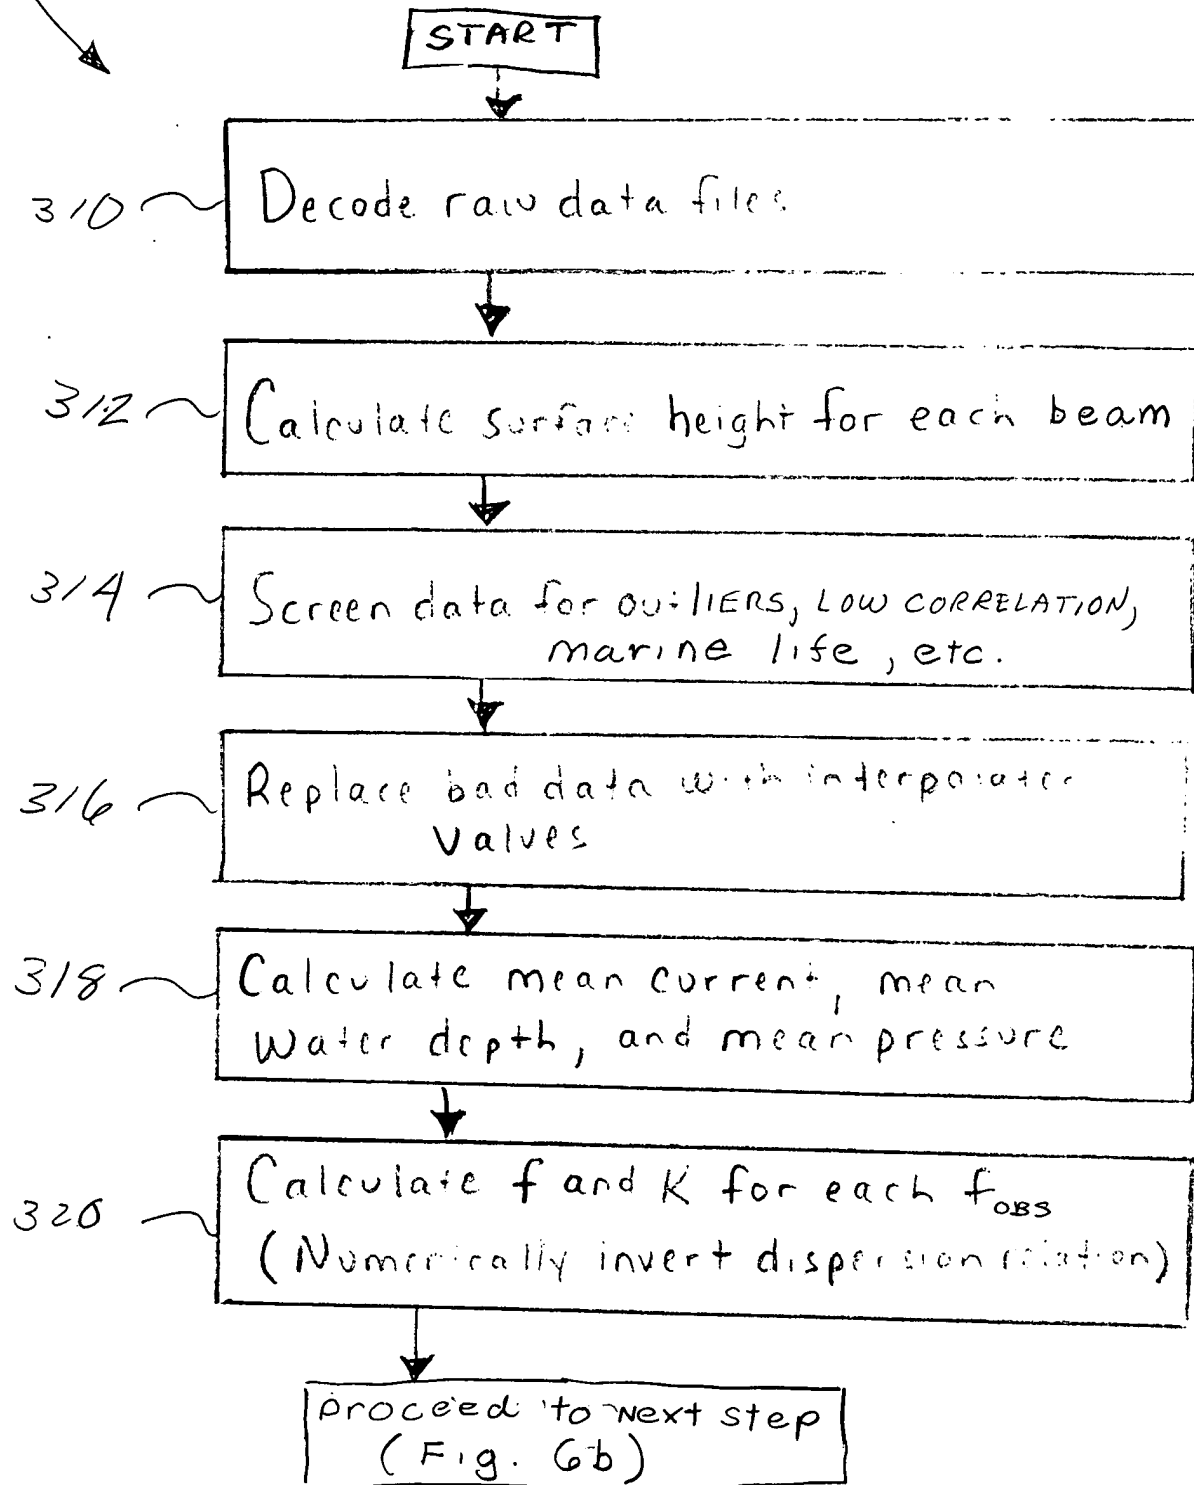 START
310
Decode raw data files
312
Calculate surface height for each beam
314
Screen data for outlIERS, LOW CORRELATION,
marine life, etc.
316
Replace bad data with interpolated
values
318
Calculate mean current, mean
Water depth, and mean pressure
320
Calculate f and K for each fOBS
(Numerically invert dispersion relation)
proceed to next step
(Fig. 6b)